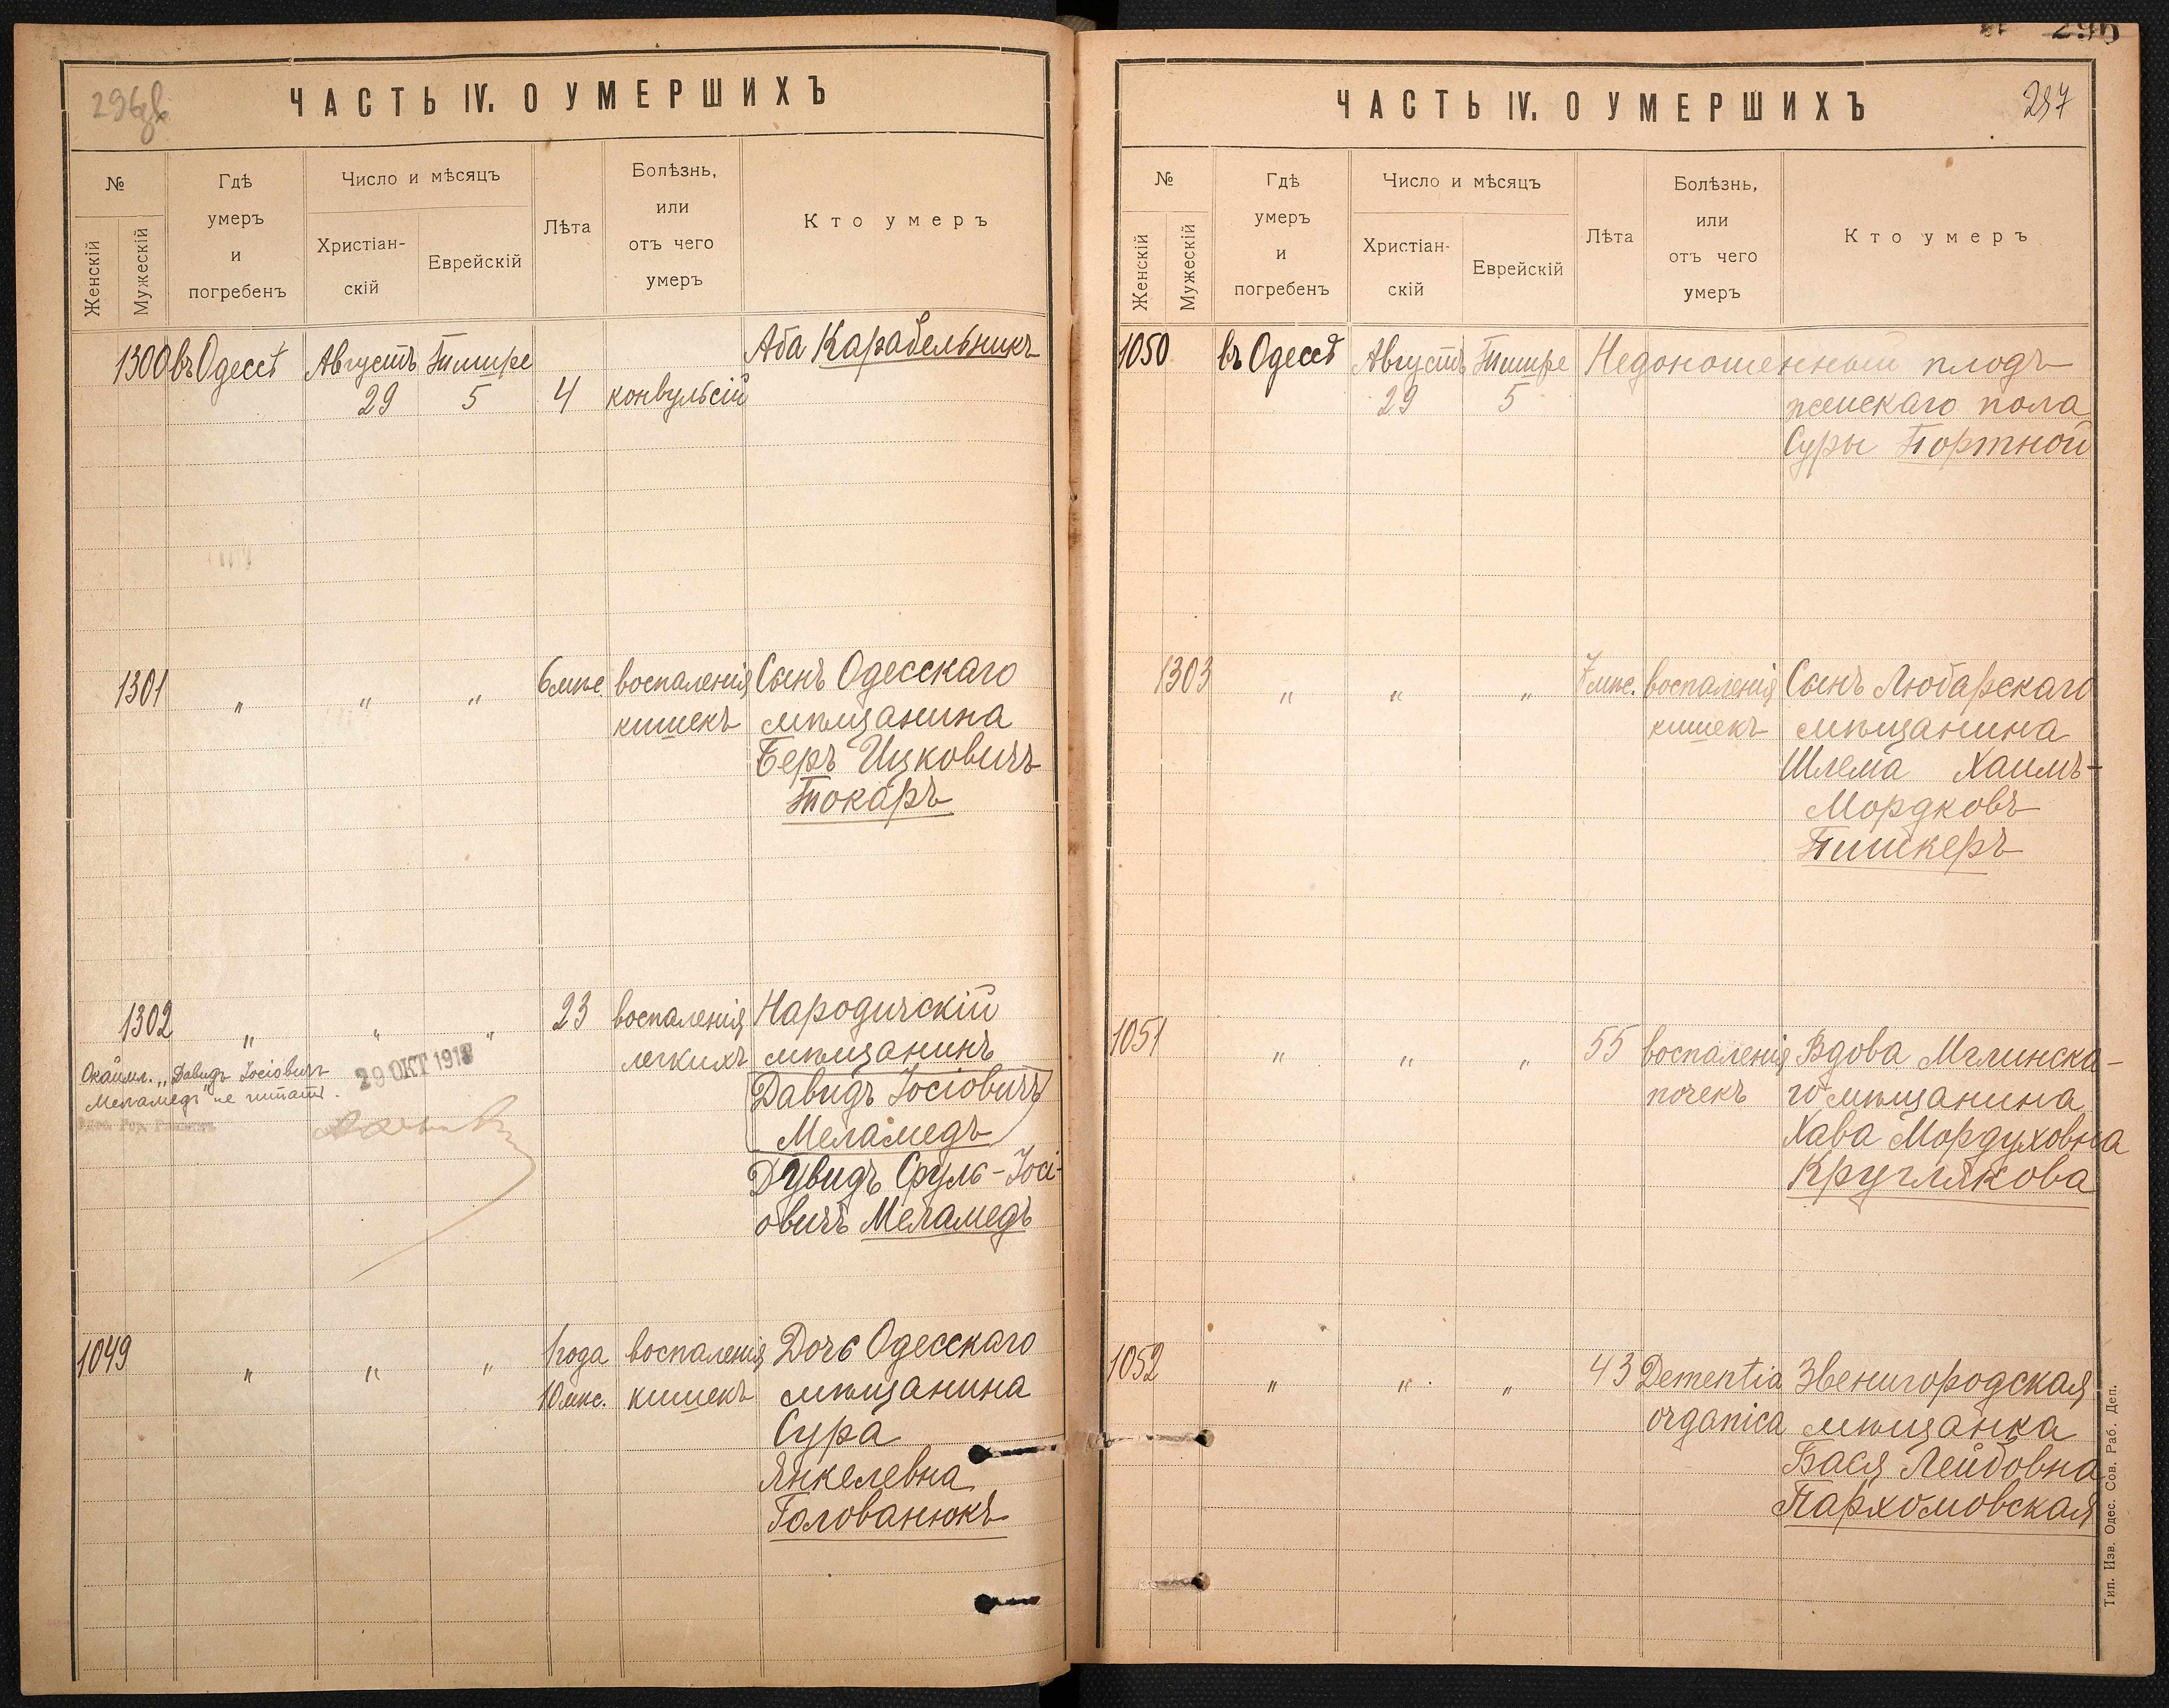 296
ЧАСТЬ IV. О УМЕРШИХЪ
№
Женскій
Мужескій
Гдѣ
умеръ
и
погребенъ
Число и мѣсяцъ
Христіан-
скій
Еврейскій
Лѣта
Болѣзнь,
или
отъ чего
умеръ
Кто умеръ
1300 въ Одессѣ Августъ Тишре Аба Карабельникъ
29 5 4 конвульсій
1301 " " " 6 мѣс. воспаленія Сынъ Одесскаго
кишекъ мѣщанина
Беръ Ицковичъ
Токаръ
1302 " " " 23 воспаленія Народичскій
легкихъ мѣщанинъ
Давидъ Іосіовичъ
Меламедъ
Дувидъ Сруль-Іосі-
овичъ Меламедъ
Окаймл. „Давидъ Іосіовичъ
Меламедъ" не читать.
29 ОКТ 1918
1049 " " " 1 года воспаленія Дочь Одесскаго
10 мѣс. кишекъ мѣщанина
Сура
Янкелевна
Голованюкъ
296
ЧАСТЬ IV. О УМЕРШИХЪ
297
№
Женскій
Мужескій
Гдѣ
умеръ
и
погребенъ
Число и мѣсяцъ
Христіан-
скій
Еврейскій
Лѣта
Болѣзнь,
или
отъ чего
умеръ
Кто умеръ
1050 въ Одессѣ Августъ Тишре Недоношенный плодъ
29 5 женскаго пола
Суры Портной
1303 " " " 7 мѣс. воспаленія Сынъ Любарскаго
кишекъ мѣщанина
Шлема Хаимъ-
Мордковъ
Пишкеръ
1051 " " " 55 воспаленія Вдова Мглинска-
почекъ го мѣщанина
Хава Мордуховна
Круглякова
1052 " " " 43 Dementia Звенигородская
organica мѣщанка
Бася Лейбовна
Пархомовская
Тип. Изв. Одес. Сов. Раб. Деп.